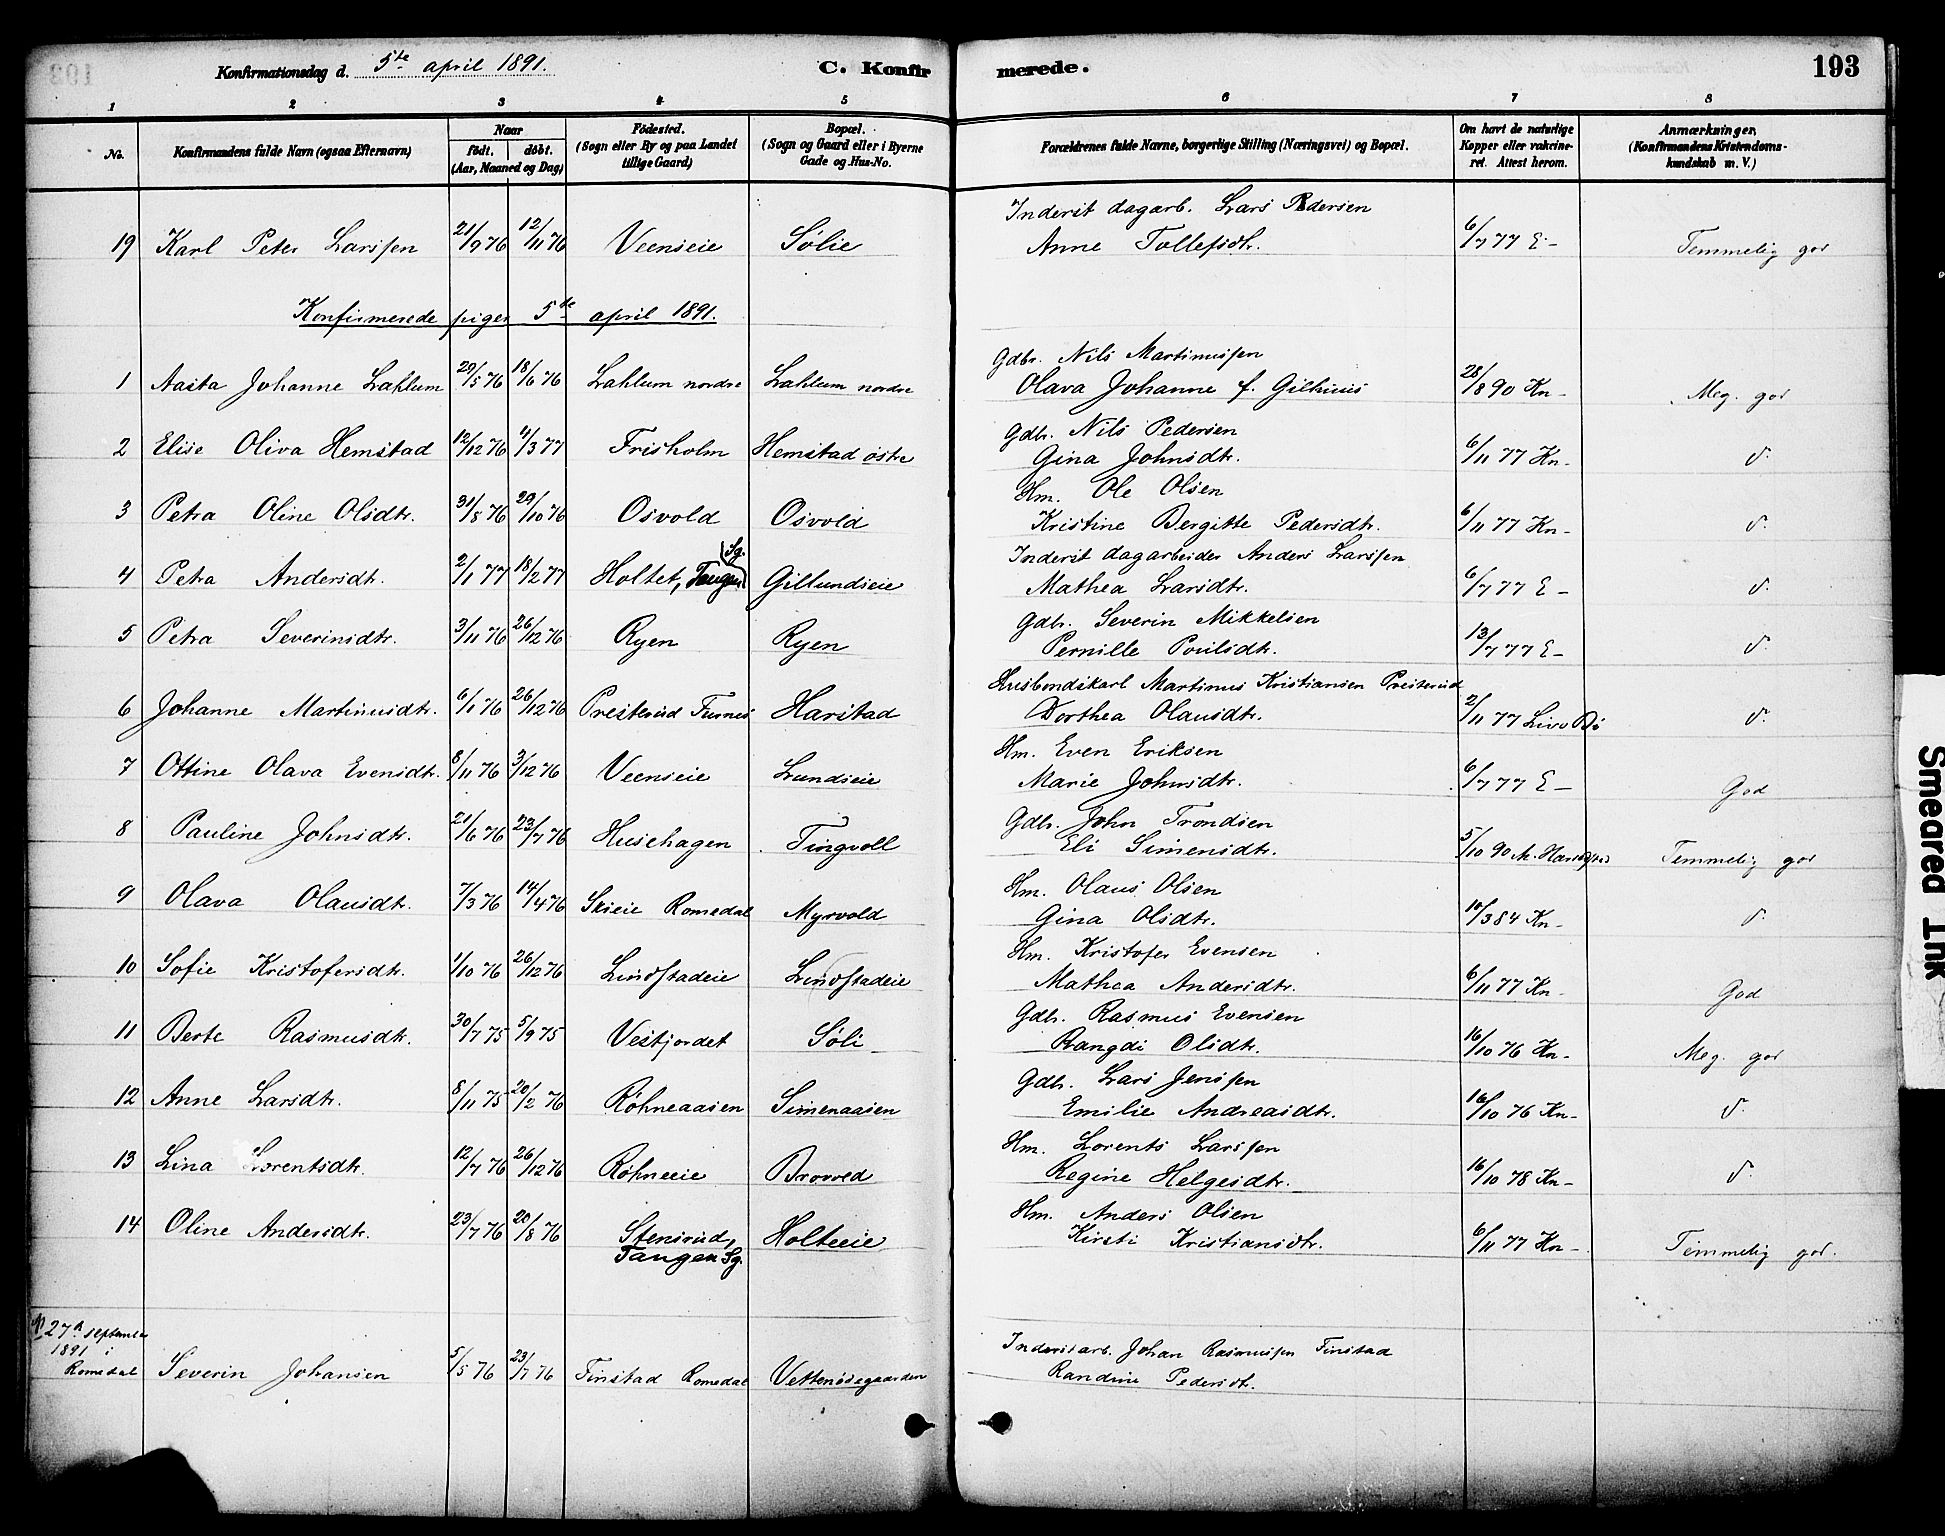 Konfirmationsdag d. 5te april 1891. C. Konfirmerede. 193
1 2 3 4 5 6 7 8
No. Konfirmandens fulde Navn (ogsaa Efternavn) Naar født. døbt. (Aar, Maaned og Dag) Fødested. (Sogn eller By og paa Landet tillige Gaard) Bopæl. (Sogn og Gaard eller i Byerne Gade og Hus-No. Forældrenes fulde Navne, borgerlige Stilling (Næringsvei) og Bopæl. Om havt de naturlige Kopper eller vakcineret. Attest herom. Anmærkninger, (Konfirmandens Kristendomskundskab m. V.)
Inderst dagarb. Lars Pedersen
19 Karl Peter Larssen 21/9 76 12/11 76 Veenseie Sølie Anne Tollefsdtr. 6/7 77 E- Temmelig god
Konfirmerede piger 5te april 1891.
Gdbr. Nils Martinussen
1 Aasta Johanne Lahlum 29/5 76 18/6 76 Lahlum nordre Lahlum nordre Olava Johanne f. Gilhuus 28/8 90 Kn- Meg. god
Gdbr. Nils Pedersen
2 Elise Oliva Hemstad 12/12 76 4/3 77 Frisholm Hemstad østre Gina Johnsdtr. 6/11 77 Kn- d.
Hm. Ole Olsen
3 Petra Oline Olsdtr. 31/8 76 29/10 76 Osvold Osvold Kristine Bergitte Pedersdtr. 6/11 77 Kn- d.
Inderst dagarbeider Anders Larssen
4 Petra Andersdtr. 2/1 77 18/2 77 Holtet, Tangen Sg. Gillundseie Mathea Larsdtr. 6/7 77 E- d.
Gdbr. Severin Mikkelsen
5 Petra Severinsdtr. 3/11 76 26/12 76 Ryen Ryen Pernille Poulsdtr. 13/7 77 E- d.
Husbondskarl Martinus Kristiansen Presterud
6 Johanne Martinusdtr. 6/1 76 26/12 76 Presterud Furnes Harstad Dorthea Olausdtr. 2/11 77 d.
Hm. Even Eriksen
7 Ottine Olava Evensdtr. 8/11 76 3/12 76 Veenseie Lundseie Marie Johnsdtr. 6/7 77 E- God
Gdbr. John Trondsen
8 Pauline Johnsdtr. 21/6 76 23/7 76 Husehagen Tingvoll Eli Simensdtr. 5/10 90 Temmelig god
Hm. Olaus Olsen
9 Olava Olausdtr. 7/3 76 14/4 76 Skieie Romedal Myrvold Gina Olsdtr. 10/3 84 Kn- d.
Hm. Kristofer Evensen
10 Sofie Kristofersdtr. 1/10 76 26/12 76 Lindstadeie Lindstadeie Mathea Andersdtr. 6/11 77 Kn- God
Gdbr. Rasmus Evensen
11 Berte Rasmusdtr. 30/7 75 5/9 75 Vestjordet Søli Rangdi Olsdtr. 16/10 76 Kn- Meg. god
Gdbr. Lars Jenssen
12 Anne Larsdtr. 8/11 75 20/2 76 Røhneaasen Simenaasen Emilie Andreasdtr. 16/10 76 Kn- d.
Hm. Lorents Larssen
13 Lina Lorentsdtr. 12/7 76 26/12 76 Røhneeie Brovold Regine Helgesdtr. 16/10 78 Kn- d.
Hm. Anders Olsen
14 Oline Andersdtr. 23/7 76 20/8 76 Stensrud, Tangen Sg. Holteeie Kirsti Kristiansdtr. 6/11 77 Kn- Temmelig god.
27de september 1891 i Romedal
Inderstarb. Johan Rasmussen Finstad
Severin Johansen 5/5 76 23/7 76 Finstad Romedal Vettenødegaarden Randine Pedersdtr.
Smeared Ink